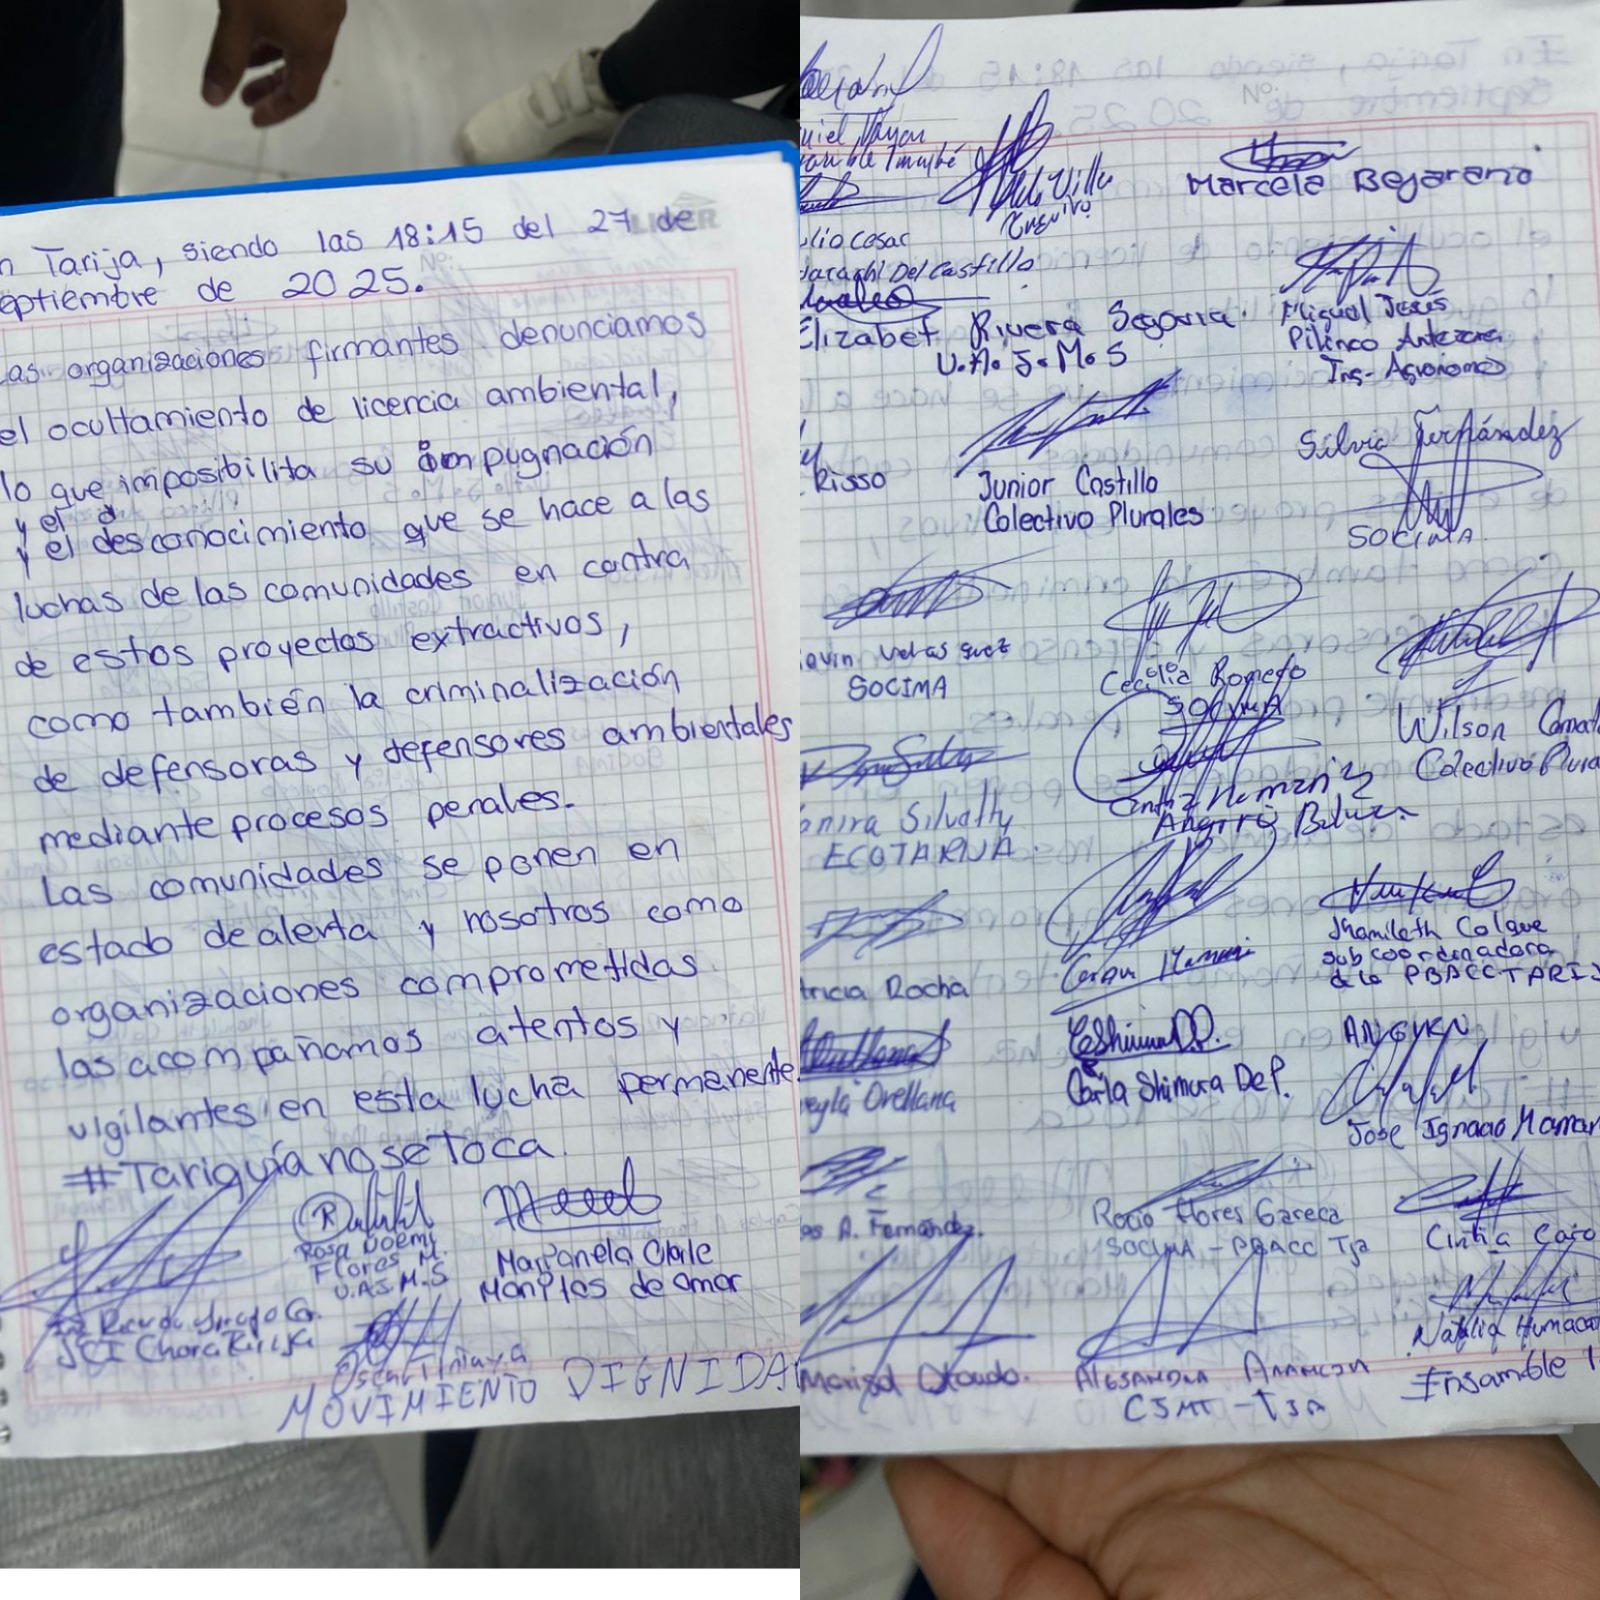 n Tarija, siendo las 18:15 del 27 de
eptiembre de 2025.
LIDER
Las organizaciones firmantes denunciamos
el ocultamiento de licencia ambiental,
lo que imposibilita su impugnación
y el d
y el desconocimiento que se hace a las
luchas de las comunidades en contra
de estos proyectos extractivos,
como también la criminalización
de defensoras y defensores ambientales
mediante procesos penales.
Las comunidades se ponen en
estado de alerta y nosotros como
organizaciones comprometidas
las acompañamos atentos y
vigilantes en esta lucha permanente.
#TariquíanoseToca.
Rosa Noemi
Flores M.
U.A.J.M.S
Marianela Olarle
Manitos de amor
MOVIMIENTO DIGNIDA
Nº
Marcela Bejarano
ulio Cesar
Del Castillo
Elizabet Rivera Segovia
U.A.J.M.S
Miguel Jesús
Ing. Agronomo
Risso
Junior Castillo
Colectivo Plurales
Silvia Fernández
SOCIMA
SOCIMA
Cecilia Romero
SOCIMA
Wilson
Colectivo Plura
ECOTARIJA
tricia Rocha
Jhamileth Colque
sub coordinadora
de la PBACCTARIJ
eyla Orellana
Carla Shimura De P.
Jose Ignacio Maman
os A. Fernández.
Rocio Flores Gareca
SOCIMA - PBACC Tja
Cintia Caro
Marisol
CSMT - TJA
Natalia Humaca
Ensamble